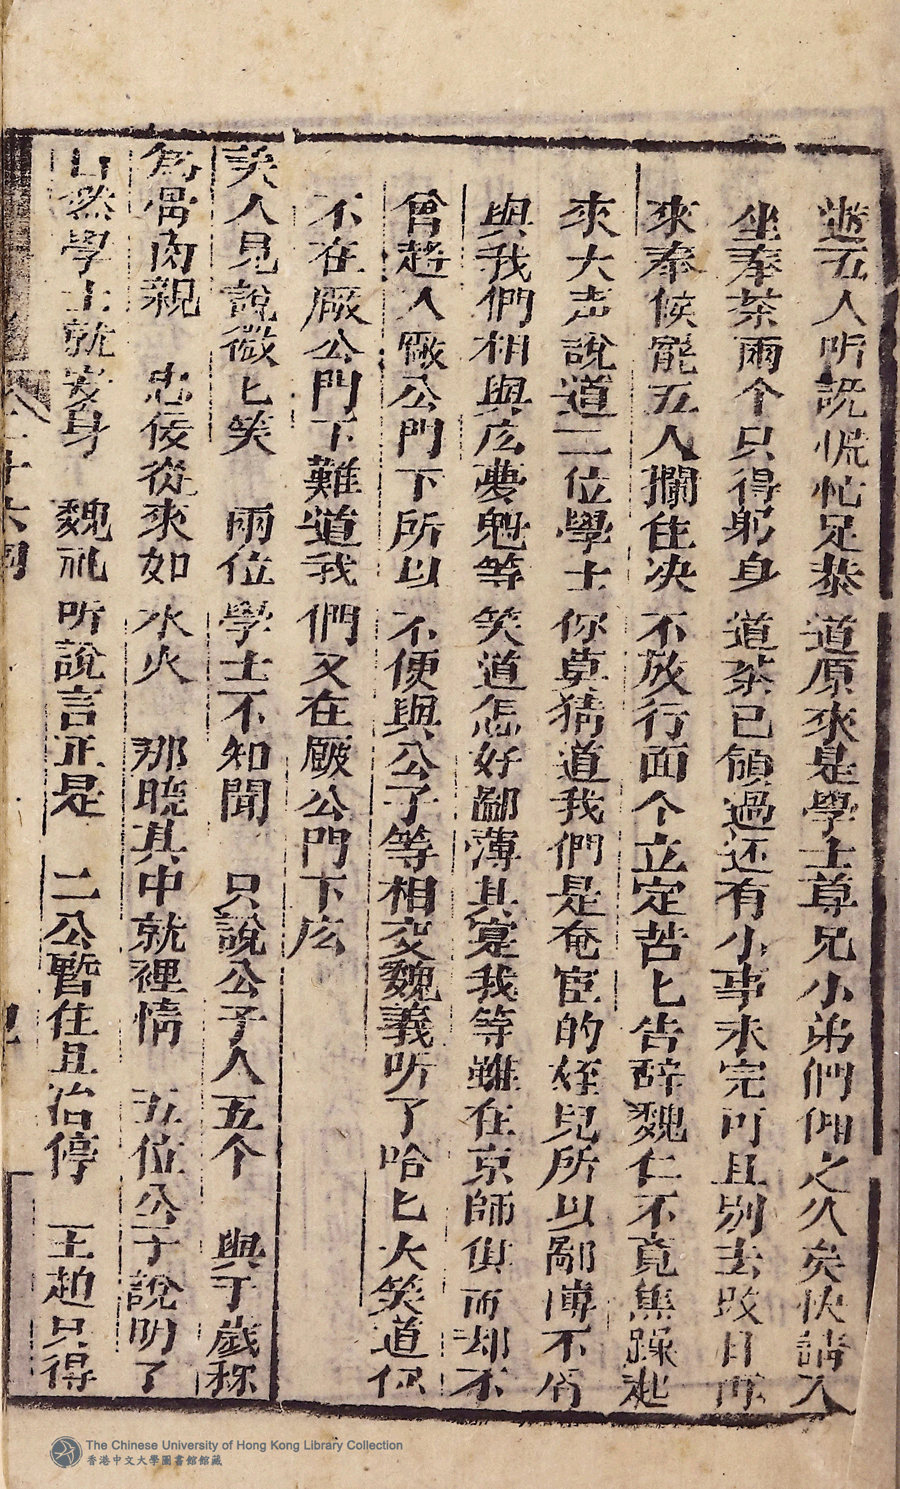 遊五人听説慌忙足恭道原來是學士尊兄小弟們仰之久矣快請入
坐奉茶兩个只得躬身道茶已領過还有小事未完可且別去改日再
來奉候寵五人攔住决不放行面个立定苦匕告辞魏仁不竟焦躁起
來大声說道二位學士你莫猜道我們是奄宦的姪兒所以鄙薄不肯
與我們相與庅夢魁等笑道怎好鄙薄其寔我等雖在京師俱而却不
曾趋入厰公門下所以不便與公子等相交魏義听了哈匕大笑道你
不在厰公門下難道我們又在厰公門下庅
美人見說微匕笑　兩位學士不知聞　只說公子人五个　與于歲称
為骨肉親　忠佞從來如水火　那曉其中就裡情　五位公子說明了
自然學士就安身　魏祂听說言正是　二公暫住且治停　王趙只得
The Chinese University of Hong Kong Library Collection
香港中文大學圖書館館藏